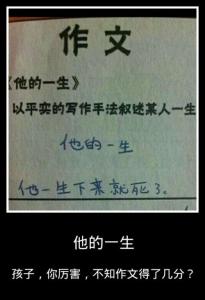 作文
《他的一生》
以平实的写作手法叙述某人一生
他的一生
他一生下来就死了。
他的一生
孩子，你厉害，不知作文得了几分？